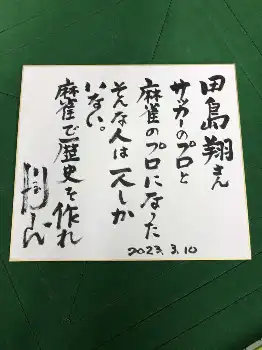 田島翔さん
サッカーのプロと
麻雀のプロになった
そんな人は一人しか
いない。
麻雀で歴史を作れ
2023.3.10